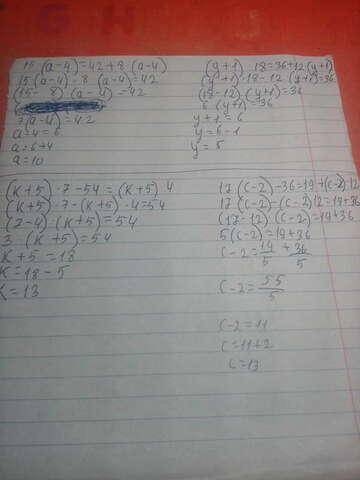 15 (a-4)=42+8 (a-4)
15(a-4)-8 (a-4)=42
(15-8) (a-4)=42
7(a-4)=42
a-4=6
a=6+4
a=10
(y+1) · 18=36+12(y+1)
(y+1)·18-12 (y+1)=36
(18-12) (y+1)=36
6 (y+1)=36
y+1=6
y=6-1
y=5
(K+5) · 7-54=(K+5) 4
(K+5) · 7-(K+5) · 4=54
(7-4) · (K+5)=54
3 · (K+5)=54
K+5=18
K=18-5
K=13
17 (c-2)-36=19+(c-2)·12
17 (c-2)-(c-2)12=19+36
(17-12) (c-2)=19+36
5(c-2)=19+36
c-2=19/5+36/5
c-2=55/5
c-2=11
c=11+2
c=13